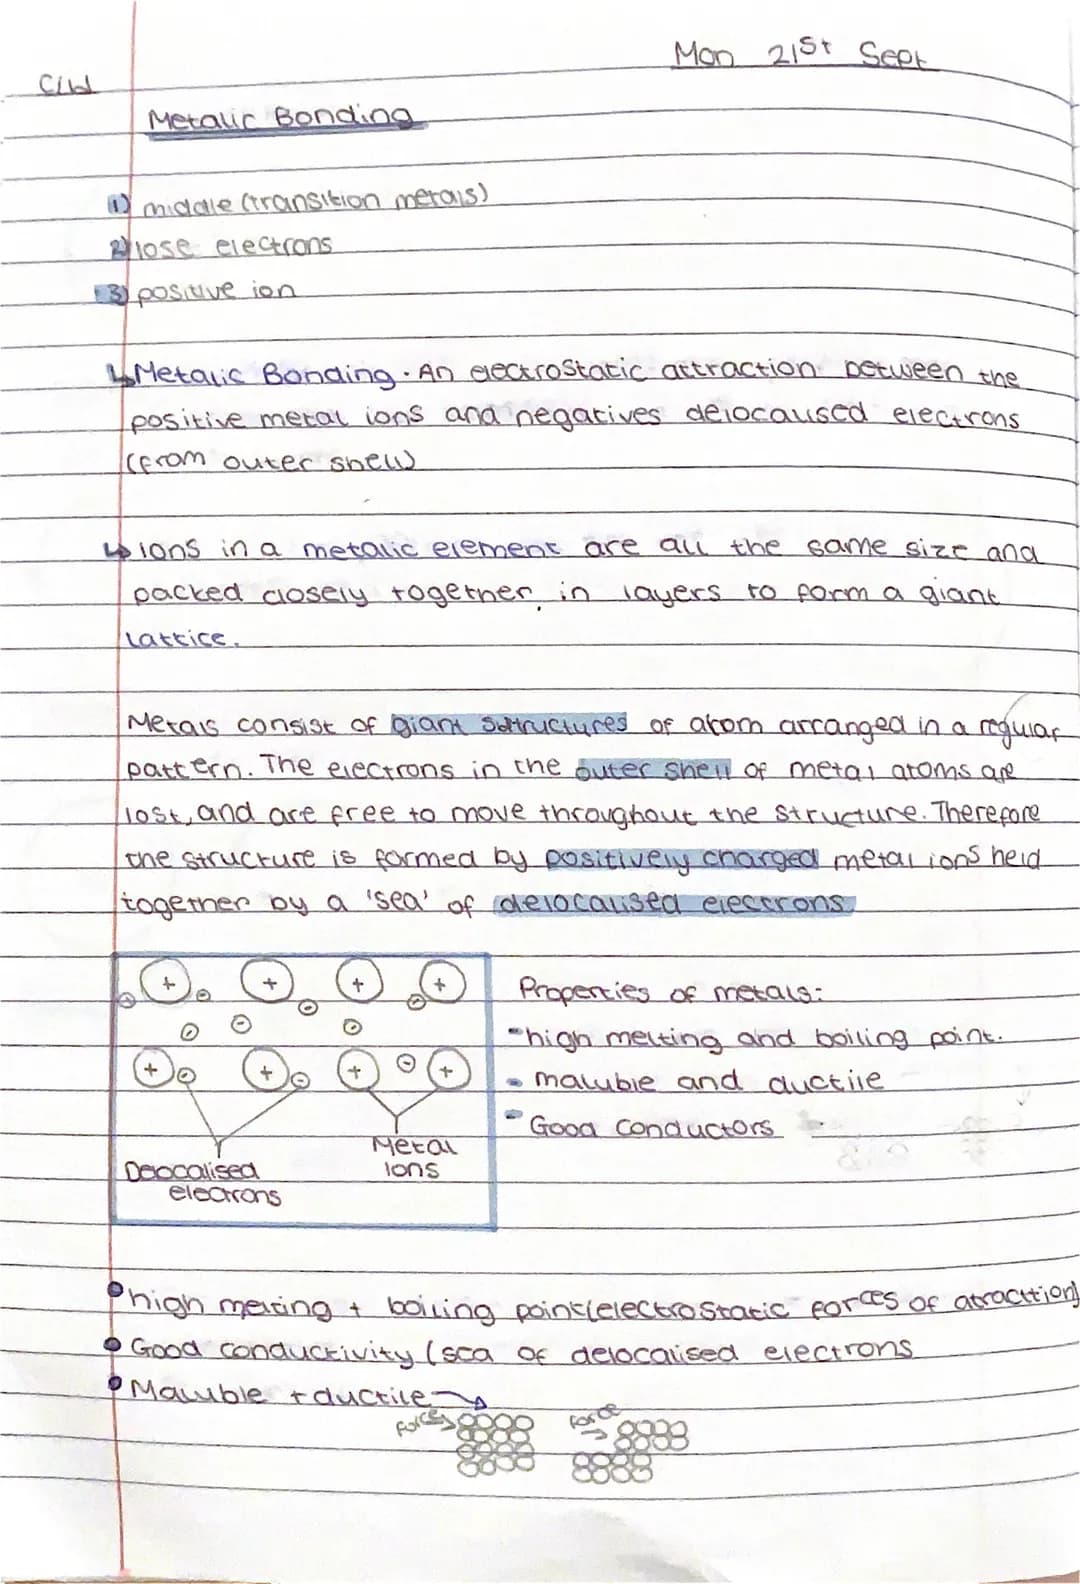 Mon 21St Sept
C/W
Metalic Bonding
1) middle (transition metals)
2) lose electrons
3) positive ion
↳Metalic Bonding. An electrostatic attraction between the
positive metal ions and negatives delocalised electrons
(from outer shell)
↳ions in a metalic element are all the same size and
packed closely together in layers to form a giant
lattice.
Metals consist of giant structures of atom arranged in a regular
pattern. The electrons in the outer shell of metal atoms are
lost, and are free to move throughout the structure. Therefore
the structure is formed by positively charged metal ions held
together by a 'sea' of delocalised electrons
+ + + +
+ + + +
Delocalised
electrons
Metal
ions
Properties of metals:
-high melting and boiling point.
- maluble and ductile
- Good conductors
•high melting + boiling point(electrostatic forces of atracttion)
• Good conductivity (sea of delocalised electrons
• Maluble + ductile
force force